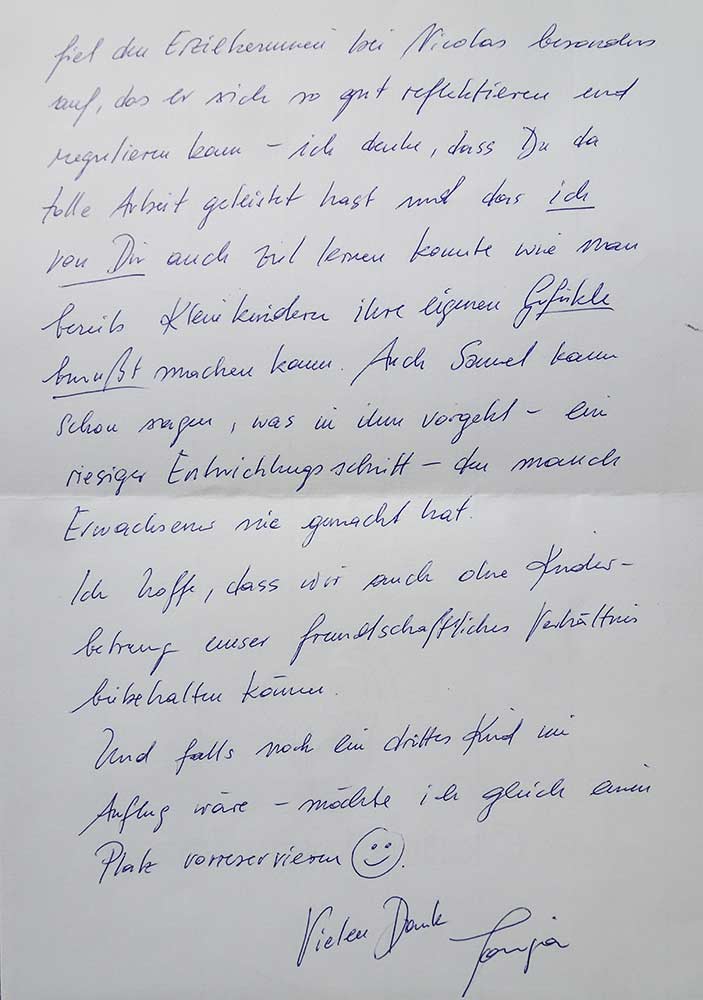 fiel den Erzieherinnen bei Nicolas besonders
auf, das er sich so gut reflektieren und
regulieren kann – ich denke, dass Du da
tolle Arbeit geleistet hast und das ich
von Dir auch viel lernen konnte wie man
bereits Kleinkindern ihre eigenen Gefühle
bewußt machen kann. Auch Samuel kann
schon sagen, was in ihm vorgeht – ein
riesiger Entwicklungsschritt – den manch
Erwachsener nie gemacht hat.
Ich hoffe, dass wir auch ohne Kinder-
betreung unser freundschaftliches Verhältnis
beibehalten können.
Und falls noch ein drittes Kind im
Anflug wäre – möchte ich gleich einen
Platz vorreservieren ☺.
Vielen Dank